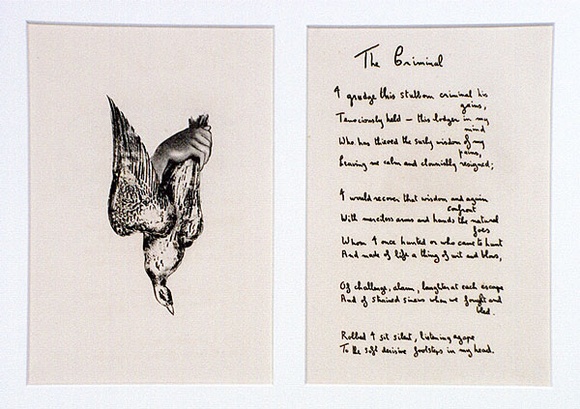 The Criminal
I grudge this stubborn criminal his
gains,
Tenaciously held – this lodger in my
mind
Who has thieved the surly wisdom of my
pains,
Leaving me calm and clownishly resigned;
I would recover that wisdom and again
confront
With merciless arms and hands the natural
foes
Whom I once hunted or who came to hunt
And made of life a thing of wit and blows,
Of challenge, alarm, laughter at each escape
And of strained sinews when we fought and
bled.
Robbed I sit silent, listening agape
To the soft derisive footsteps in my head.